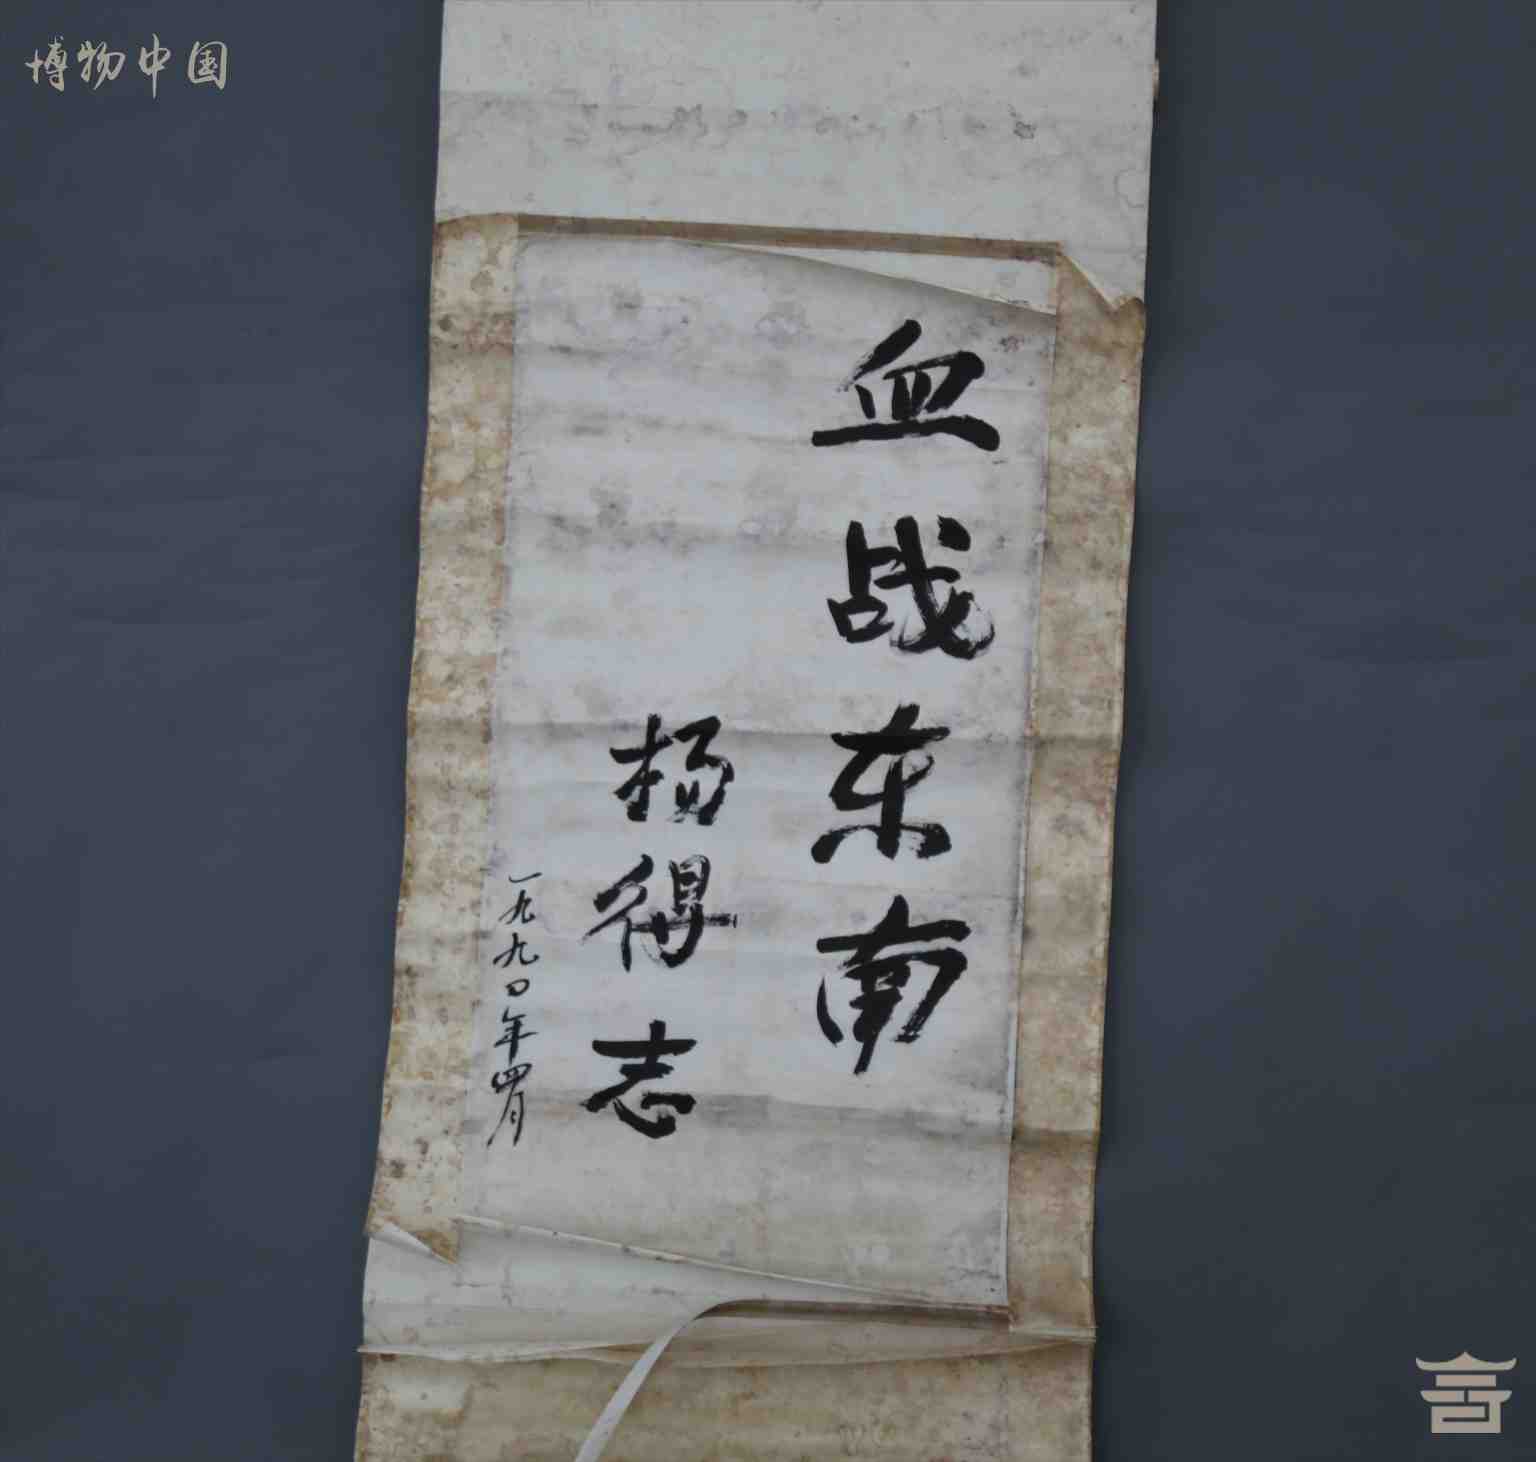 博物中国
血战东南
杨得志
一九九〇年四月